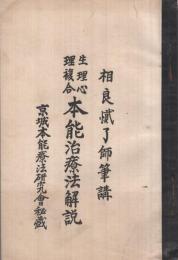 相良懺了師筆講
生理心理複合
本能治療法解説
京城本能療法研究會秘蔵